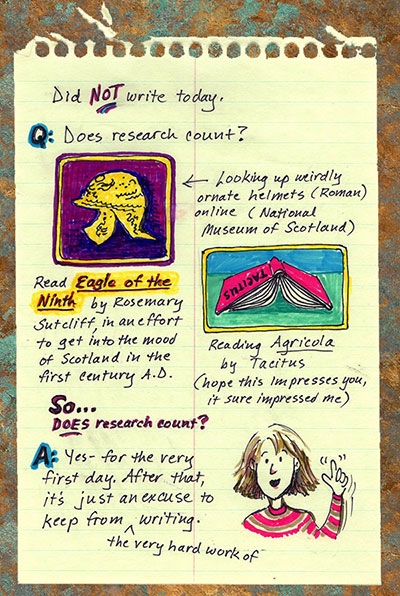 Did NOT write today.
Q: Does research count?
← Looking up weirdly
ornate helmets (Roman)
online (National
Museum of Scotland)
Read Eagle of the
Ninth by Rosemary
Sutcliff, in an effort
to get into the mood
of Scotland in the
first century A.D.
TACITUS
Reading Agricola
by Tacitus
(hope this impresses you,
it sure impressed me)
So...
DOES research count?
A: Yes- for the very
first day. After that,
it's just an excuse to
keep from ^ writing.
the very hard work of